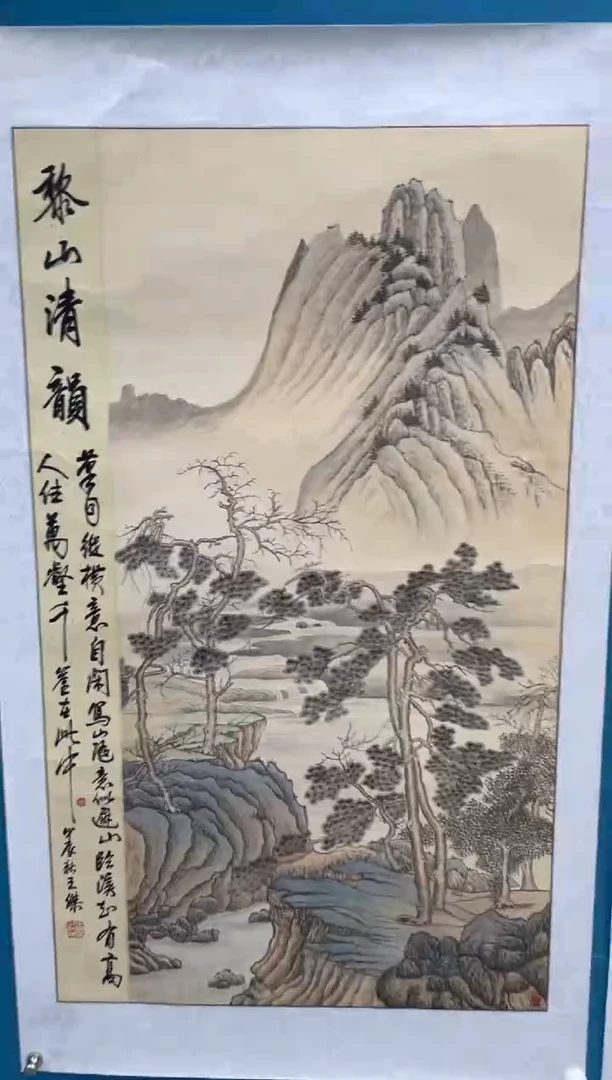 黎山清韻
葊目縱橫意自閑寫山隱意似避山臨溪知有高
人住萬壑千蒼在此中
甲辰秋王傑